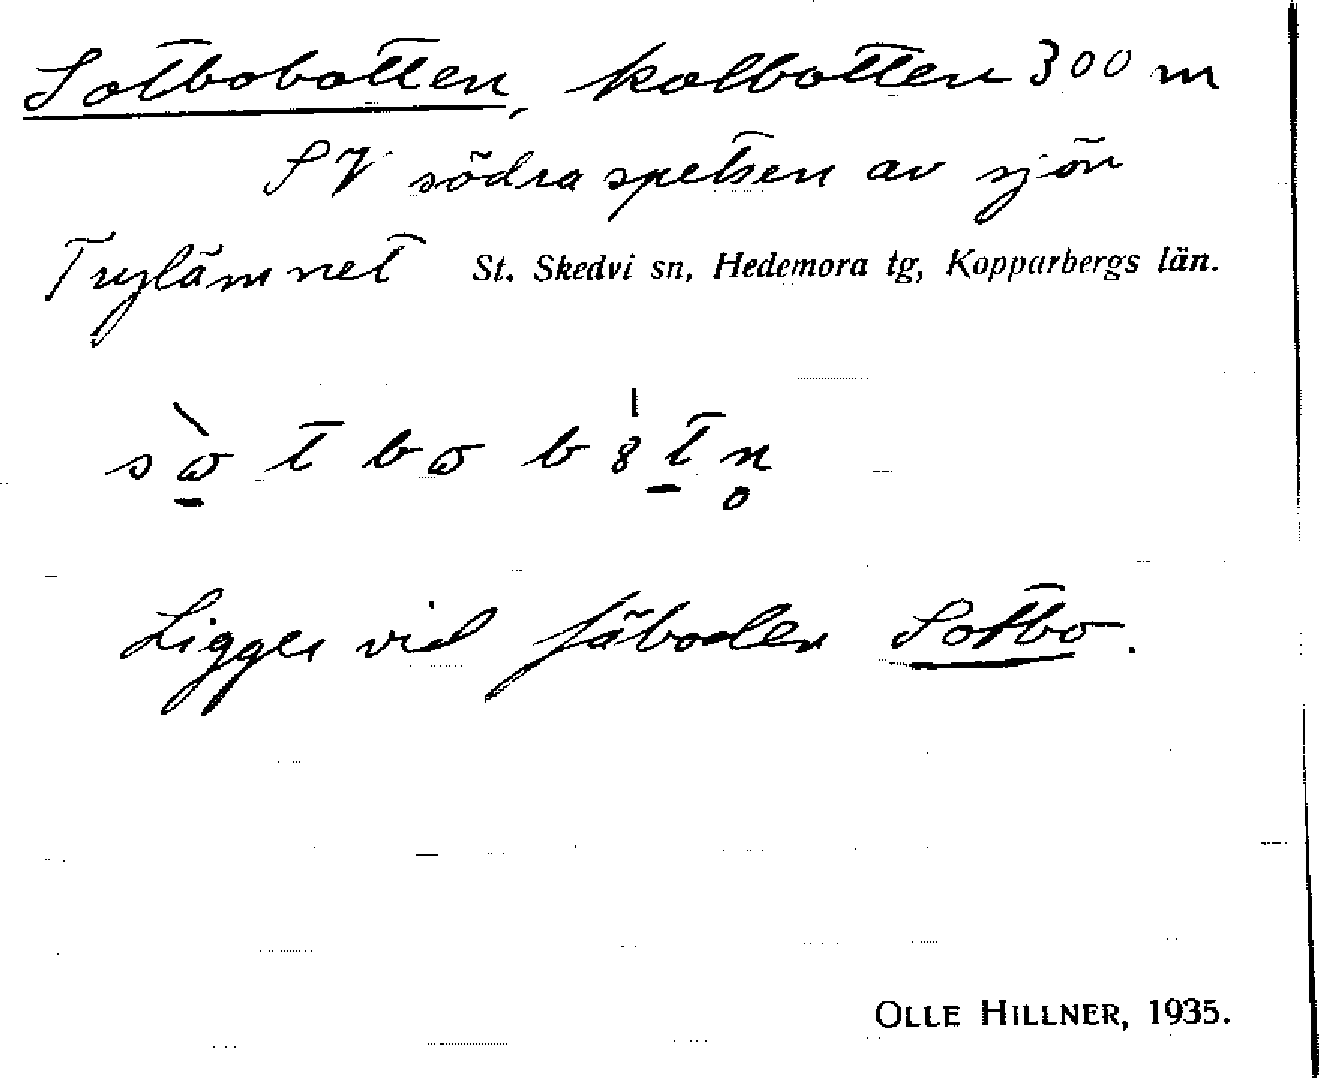 Sotbobotten, kolbotten 300 m
SV södra spetsen av sjön
Tryläm net St. Skedvi sn, Hedemora tg, Kopparbergs län.
Ligger vid fäboden Sotbo.
OLLE HILLNER, 1935.